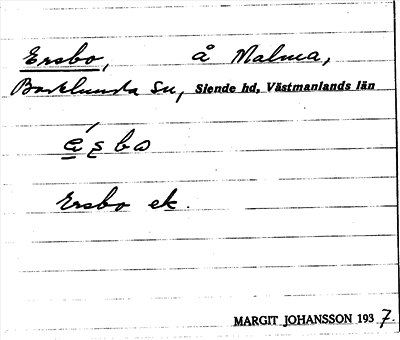 Ersbo, å Malma,
Barklunda sn, Siende hd, Västmanlands län
Ersbo ek.
MARGIT JOHANSSON 1937.